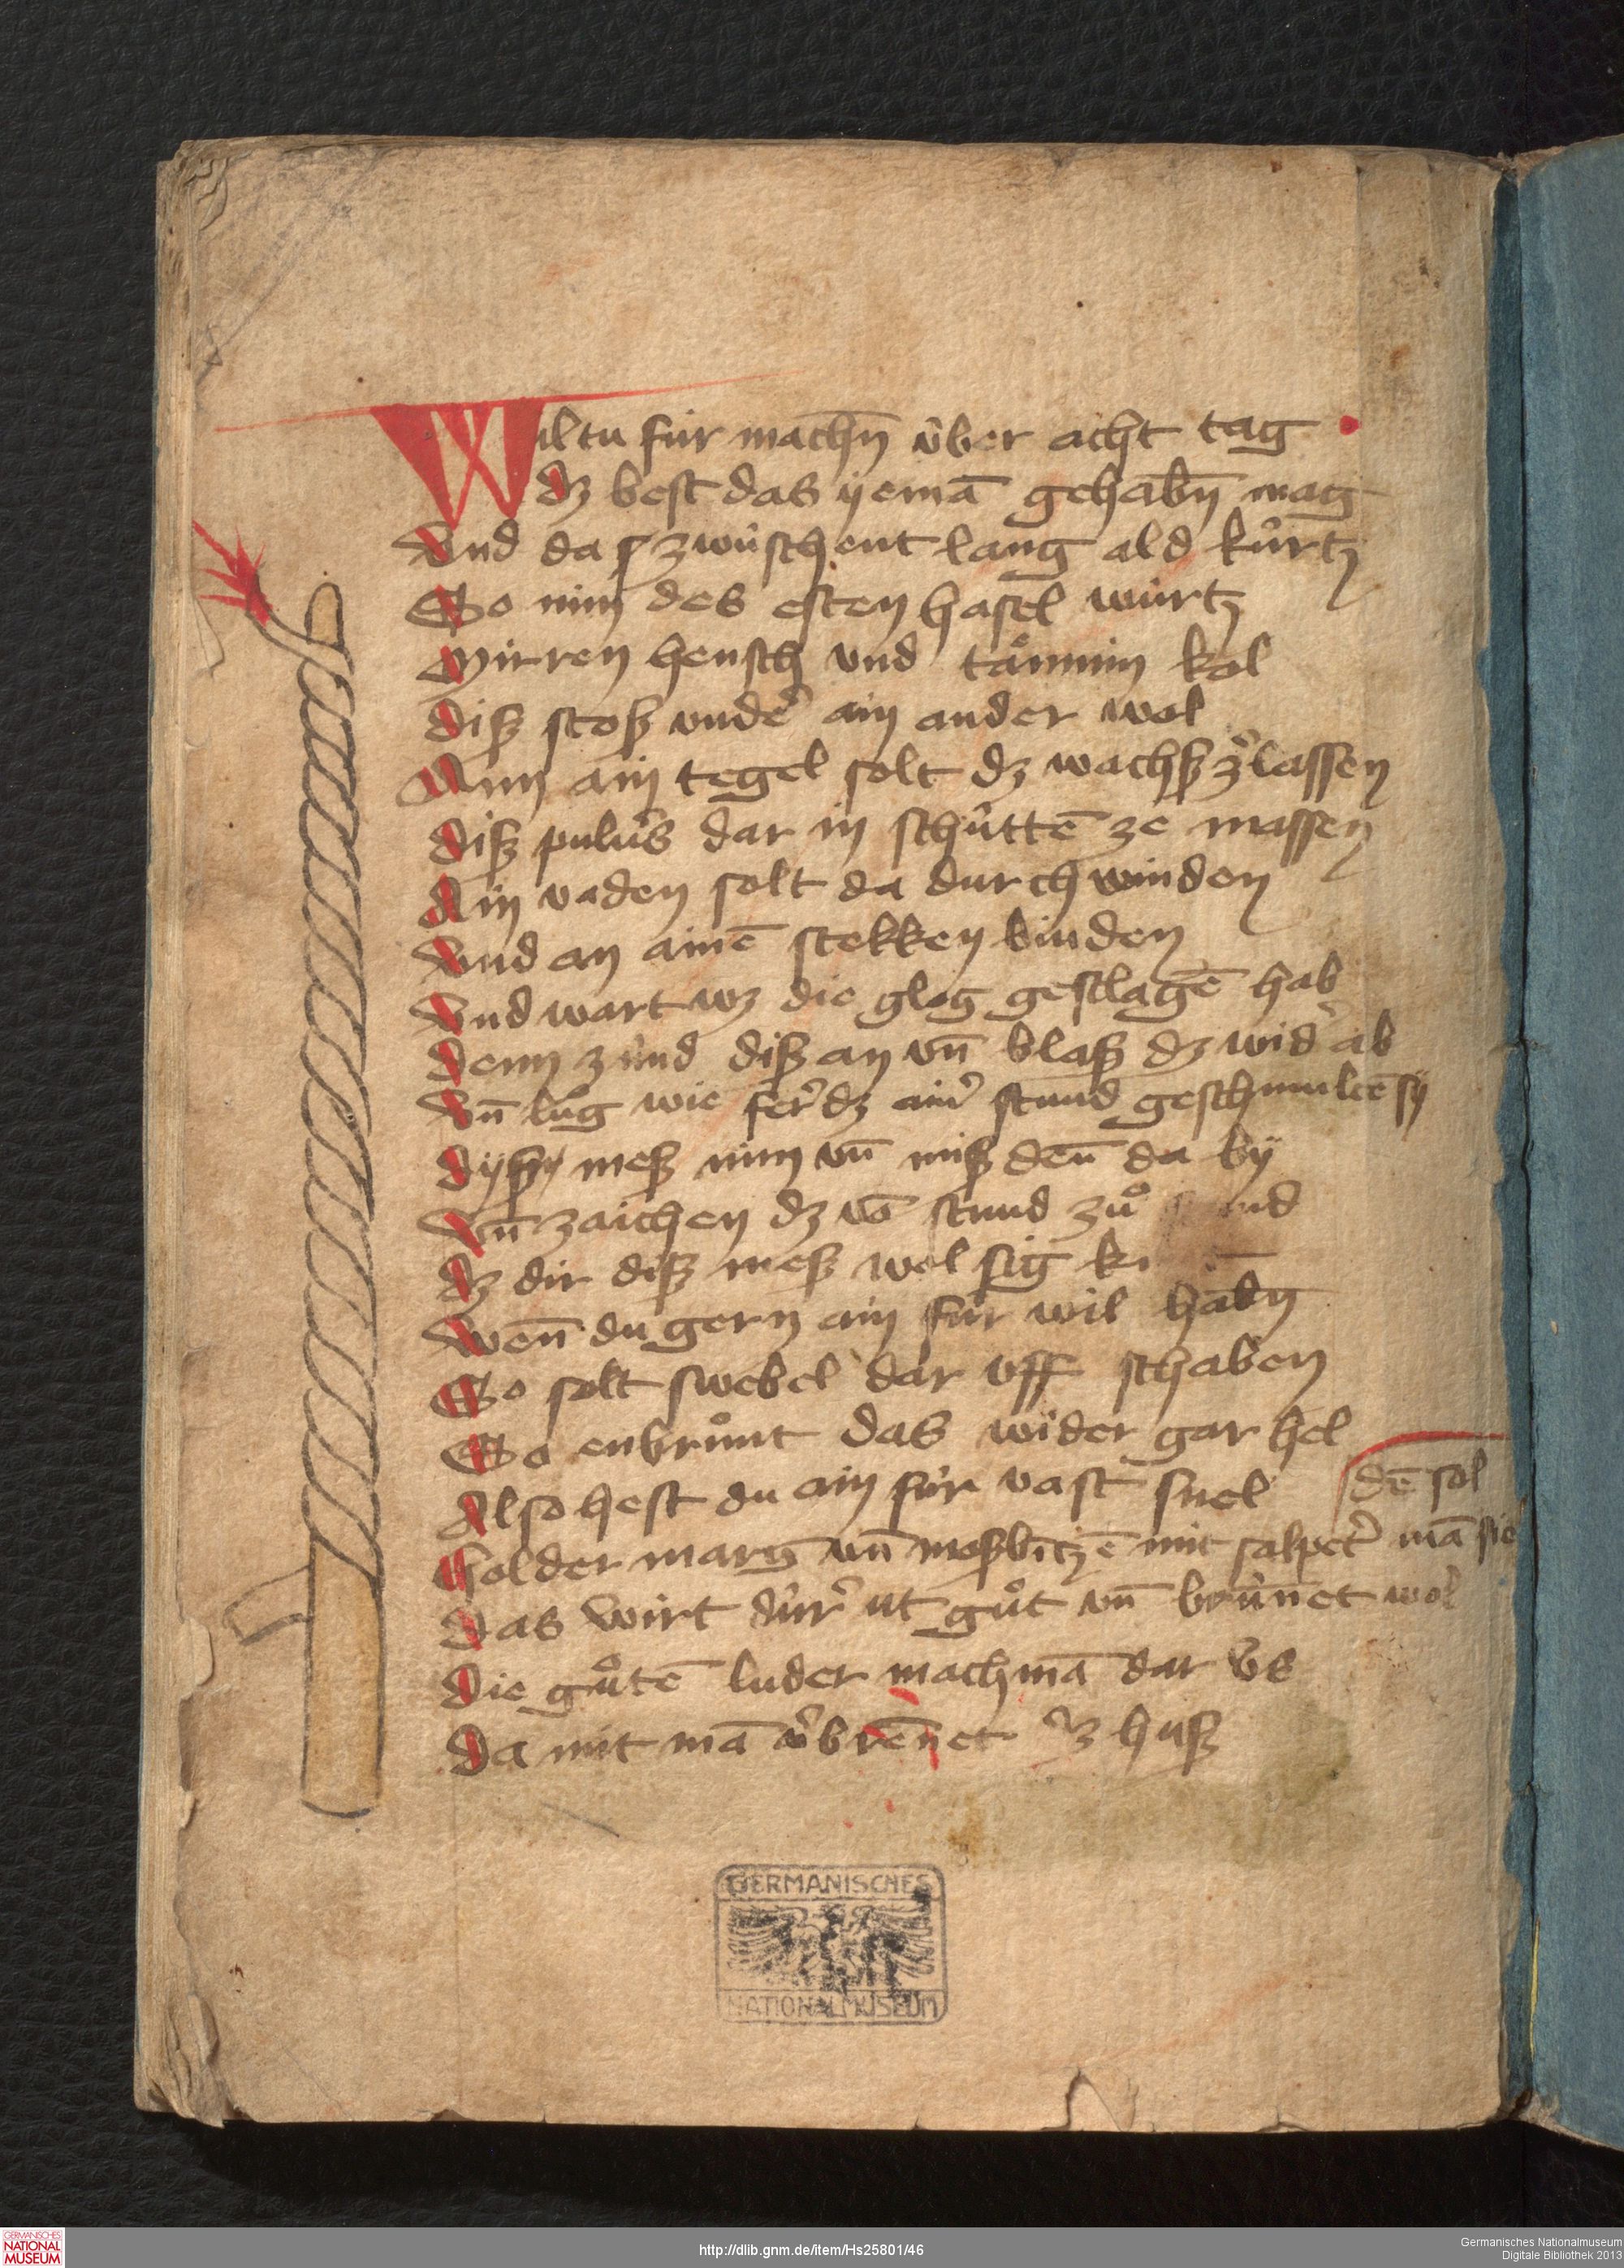 Wiltu für machn̄ über acht tag
dz best das yemā gehabn̄ mag
Vnd das zwüschent lang ald kürtz
So nim des esten hasel würtz
Mirren hensch vnd tännin kol
Disz stosz vnder ain ander wol
Ann ain tegel solt dz wachsz zerlassen
Disz puluers dar in schüttē ze massen
Ain vaden solt da durch winden
Vnd an ainē stekken binden
Vnd wart wz die glog gesclagē hab
Denn zünd disz an vn̄ blasz dz wider ab
Vn̄ lůg wie fer dz ainer stund geschmulcē sy
Dysz mesz nim vn̄ misz den̄ da by
Vn̄ zaichen dz vō stund zů
Dz dir disz mesz wol sig
Wen̄ du gern ain für wil habn̄
So solt swebel dar vff schaben
So enbrünt das wider gar hel
Also hest du ain für vast snel
dē sol
Holder marg vn̄ mosbītzē mit salpeter mā sie
Das wirt dürer ut gůt vn̄ brünnet wol
Die gůtē luder mach mā dar vs
Da mit mā verbrēnet husz
GERMANISCHES
NATIONALMUSEUM
GERMANISCHES
NATIONAL
MUSEUM
http://dlib.gnm.de/item/Hs25801/46
Germanisches Nationalmuseum
Digitale Bibliothek 2013